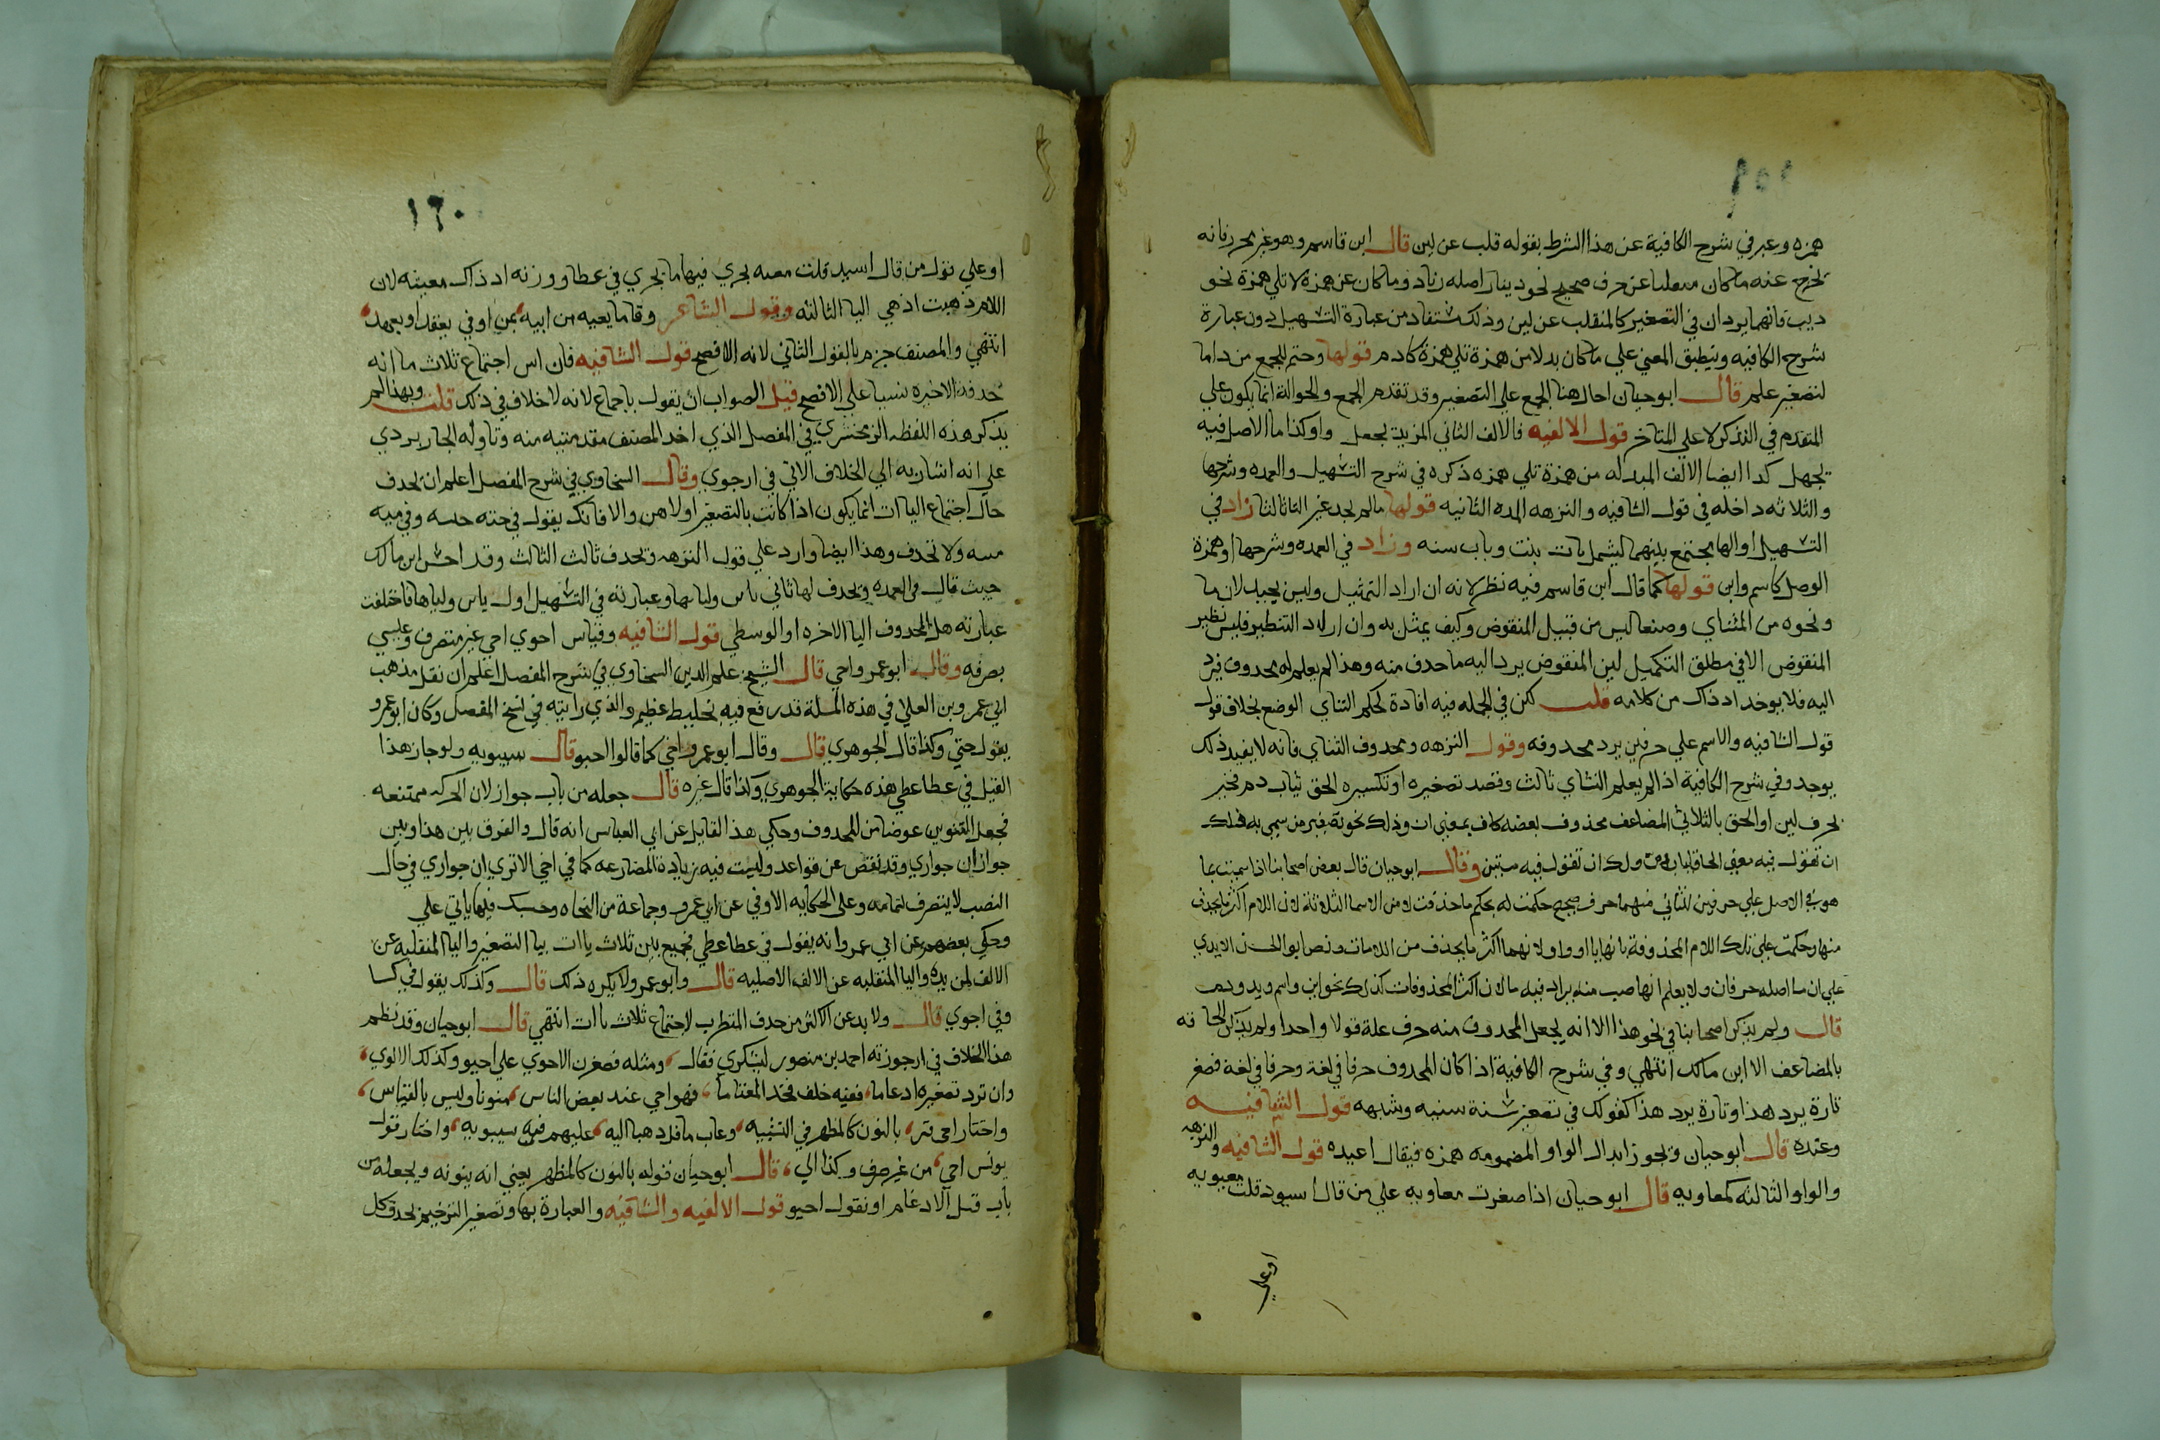 ١٥٩
همزه وعبر في شرح الكافية عن هذا الشرط بقوله قلب عن لين قال ابن قاسم وهو غير محرر فانه
يخرج عنه ما كان منقلبا عن حرف صحيح نحو دينار اصله دنار وما كان عن همزة لا تلي همزة نحو
ديب فانهما يردان في التصغير كالمنقلب عن لين وذلك مستفاد من عبارة التسهيل دون عبارة
شرح الكافيه وينطبق المعني علي ما كان بدلا من همزة تلي همزة كادم قولها وحتم للجمع من ذا ما
لتصغير علم قال ابوحيان احال هنا الجمع علي التصغير وقد تقدم الجمع والحوالة انما يكون علي
المتقدم في الذكر لا علي المتاخر قول الالفيه فالالف الثاني المزيد يجعل واوا كذا ما الاصل فيه
يجهل كذا ايضا الالف المبدله من همزة تلي همزه ذكره في شرح التسهيل والعمده وشرحها
والثلاثه داخله في قول الشافيه والنزهه المده الثانيه قولها ما لم يحد غير التا ثالثا زاد في
التسهيل اوالها يجتمع بينهما ليشمل باب بنت وباب سنه وزاد في العمده وشرحها او همزة
الوصل كاسم وابن قولها كما قال ابن قاسم فيه نظر لانه ان اراد التمثيل وليس بجيد لان ما
ونحوه من الثناي وضعا ليس من قبيل المنقوص وكيف يمثل به وان اراد التنظير فليس نظير
المنقوص الا في مطلق التكميل لان المنقوص يرد اليه ما حذف منه وهذا لم يعلم له محذوف فيرد
اليه فلا يوخذ اذ ذاك من كلامه قلت لكن في الجمله فيه افادة لحكم الثناي الوضع بخلاف قول
قول الشافيه والاسم علي حرفين يرد محذوفه وقول النزهه ومحذوف الثناي فانه لا يفيد ذلك
يوجد وفي شرح الكافية اذا لم يعلم للثناي ثالث وقصد تصغيره او تكسيره الحق بباب دم فجبر
بحرف لين او الحق بالثلاثي المضاعف محذوف بعضه كاف بمعني ان وذلك نحو من سمي به فلك
ان تقول فيه مني الحاقا بباب دم ولك ان تقول فيه منين وقال ابوحيان قال بعض اصحابنا اذا سميت بما
هو في الاصل علي حرفين الثاني منهما حرف صحيح حكمت له بحكم ما حذفت لامه من الاسما الثلاثة لان اللام اكثر ما يحذف
منها وحكمت علي تلك اللام المحذوفة بانها يا او واو لانهما اكثر ما يحذف من اللامات ونص ابو الحسن الابدي
علي ان ما اصله حرفان ولا يعلم انها صب منه يراد فيه ما لان اكثر المحذوفات كذلك نحو ابن واسم ويد ودم
قال ولم يذكر اصحابنا في نحو هذا الا انه يجعل المحذوف منه حرف علة قولا واحدا ولم يذكر الحاقه
بالمضاعف الا ابن مالك انتهي وفي شرح الكافية اذا كان المحذوف حرفا في لغة وحرفا في لغة فصغر
تارة يرد هذا وتارة يرد هذا كقولك في تصغير سنة سنيه وشبهه قول الشافيه
وعده قال ابوحيان وتجوز ابدال الواو المضمومه همزه فيقال اعيده قول الشافيه والنزهه
والواو الثالثه كمعاويه قال ابوحيان اذا صغرت معاويه علي من قال اسيود قلت معيويه
اوعلي
١٦٠
او علي قول من قال اسيد قلت معيه يجري فيها ما يجري في عطا ووزنه اذ ذاك معيفه لان
اللام ذهبت اذ هي اليا الثالثه وقول الشاعر وقاما يعيه من ابيه لمن اوفي بعقد او بعهد
انتهي والمصنف جزم بالقول الثاني لانه الافصح قول الشافيه فان اس اجتماع ثلاث ما انه
حذفت الاخيره نسيا علي الافصح قيل الصواب ان يقول باجماع لانه لا خلاف في ذلك قلت ولهذا لم
يذكر هذه اللفظه الزمخشري في المفصل الذي اخذ المصنف مقدمتيه منه وتاوله الجاربردي
علي انه اشار به الي الخلاف الاتي في ارجوي وقال السخاوي في شرح المفصل اعلم ان يحذف
حال اجتماع الياات انما يكون اذا كانت بالتصغير اولاهن والا فانك يقول في حته حيه وفي ميه
مييه ولا تحذف وهذا ايضا وارد علي قول النزهه ويحذف ثالث الثالث وقد احسن ابن مالك
حيث قال في العمده ويحذف لها ثاني ياين ولياها وعبارته في التسهيل اول ياين ولياها فاختلفت
عبارته هل المحذوف اليا الاخره او الوسطي قول الشافيه وقياس احوي احي غير منصرف وعيسي
يصرفه وقال ابوعمرو احي قال الشيخ علم الدين السخاوي في شرح المفصل اعلم ان نقل مذهب
ابي عمر وبن العلاي في هذه المسلة قد وقع فيه تخليط عظيم والذي رايته في نسخ المفصل وكان ابوعمرو
يقول حتي وكذا قال الجوهري قال وقال ابوعمرو احي كما قالوا احيو قال سيبويه ولو جاز هذا
القيل في عطا عطي هذه حكاية الجوهري وكذا قال غيره قال جعله من باب جواز لان الحركه ممتنعه
فجعل التنوين عوضا من المحذوف وحكي هذا القايل عن ابي العباس انه قال والفرق بين هذا وبين
جوازان جواري وقد نقص عن قواعد وليست فيه زيادة المضارعه كما في احي الا تري ان جواري في حال
النصب لا ينصرف لتمامه وعلي الحكايه الاوفي عن ابي عمرو وجماعة من النحاه وحسبك فيها ياتي علي
وحكي بعضهم عن ابي عمرو انه يقول في عطا عطي فجمع بين ثلاث ياات بيا التصغير واليا المنقلبة عن
الالف المزيده واليا المنقلبه عن الالف الاصليه قال وابوعمرو لا يكره ذلك قال وكذلك يقول في كسا
وفي احوي قال ولا بد عن الاكثر من حذف المتطرب لاجتماع ثلاث ياات انتهي قال ابوحيان وقد نظم
هذا الخلاف في ارجوزته احمد بن منصور ليشكري فقال ومثله فصغرن الاحوي علي احيو وكذلك الالوي
وان ترد تصغيره ادغاما ففيه خلف فخذ المعتاما فهو احي عند بعض الناس منونا وليس بالقياس
واختار احي نتر بالنون كالمظهر في التشبيه وعاب ما قلد هبا اليه عليهم فيه سيبويه واختار قول
يونس احي من غير صرف وكذا الي قال ابوحيان قوله بالنون كالمظهر يعني انه ينونه ويجعله من
باب قبل الادغام او نقول احيو قول الالفيه والشافيه والعبارة بها وتصغير الترخيم بحذف كل